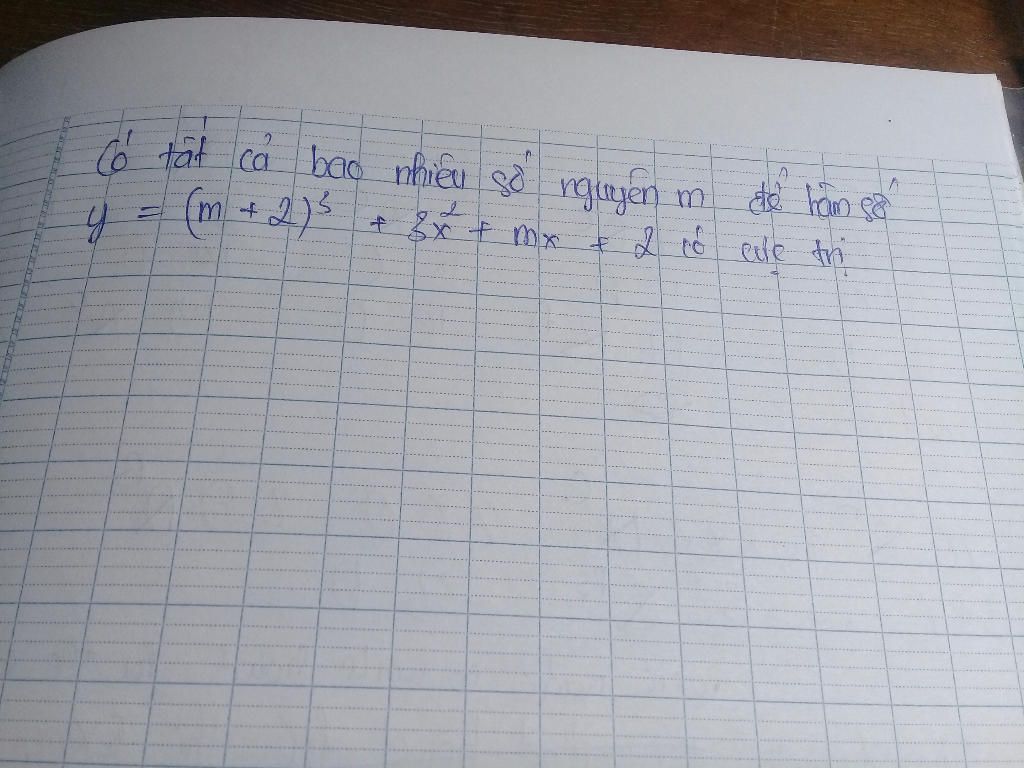 Có tất cả bao nhiêu số nguyên m để hàm số
y = (m + 2)³ + 3x² + mx + 2 có cực trị